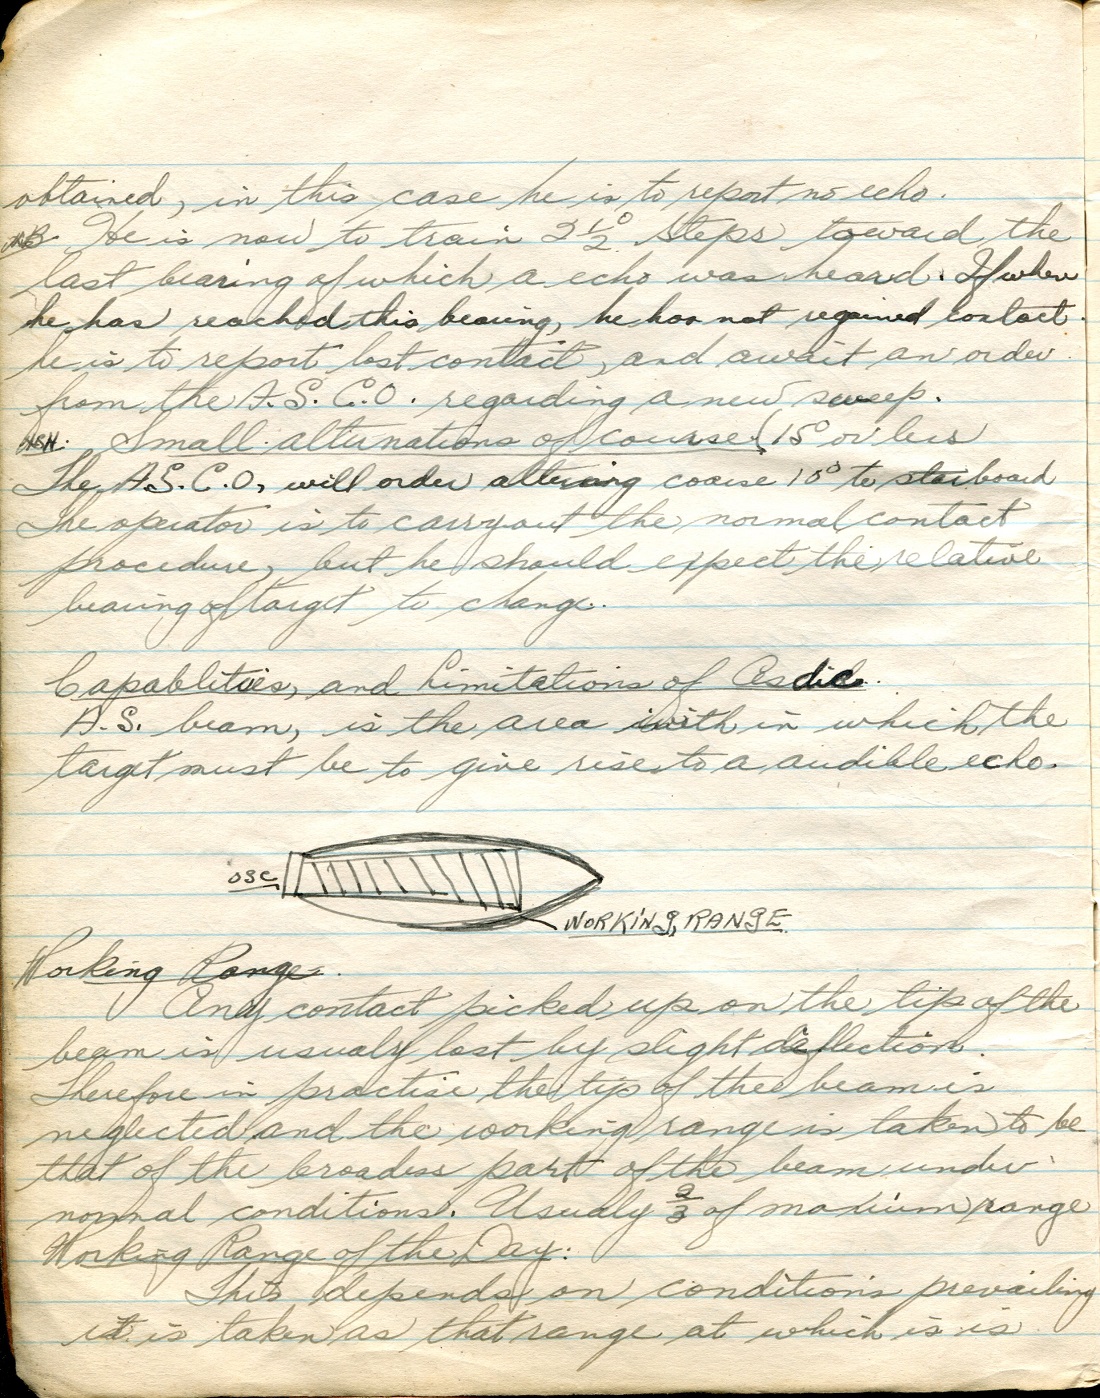 obtained, in this case he is to report no echo.
NB He is now to train 2½° steps toward the
last bearing of which a echo was heard. If when
he has reached this bearing, he has not regained contact.
he is to report lost contact, and await an order.
from the A.S.C.O. regarding a new sweep.
Small alternations of course (15° or less
The A.S.C.O, will order altering coarse 15° to starboard
The operator is to carry out the normal contact
procedure, but he should expect the relative
bearing of target to change.
Capablities, and Limitations of Asdic.
A.S. beam, is the area with in which the
target must be to give rise to a audible echo.
OSC
WORKING, RANGE
Working Range.
Any contact picked up on the tip of the
beam is usualy lost by slight diflection.
Therefore in practise the tip of the beam is
neglected and the working range is taken to be
that of the broadess part of the beam under
normal conditions. Usualy 2/3 of maxium range
Working Range of the Day:
This depends on conditions prevailing
it is taken as that range at which is is